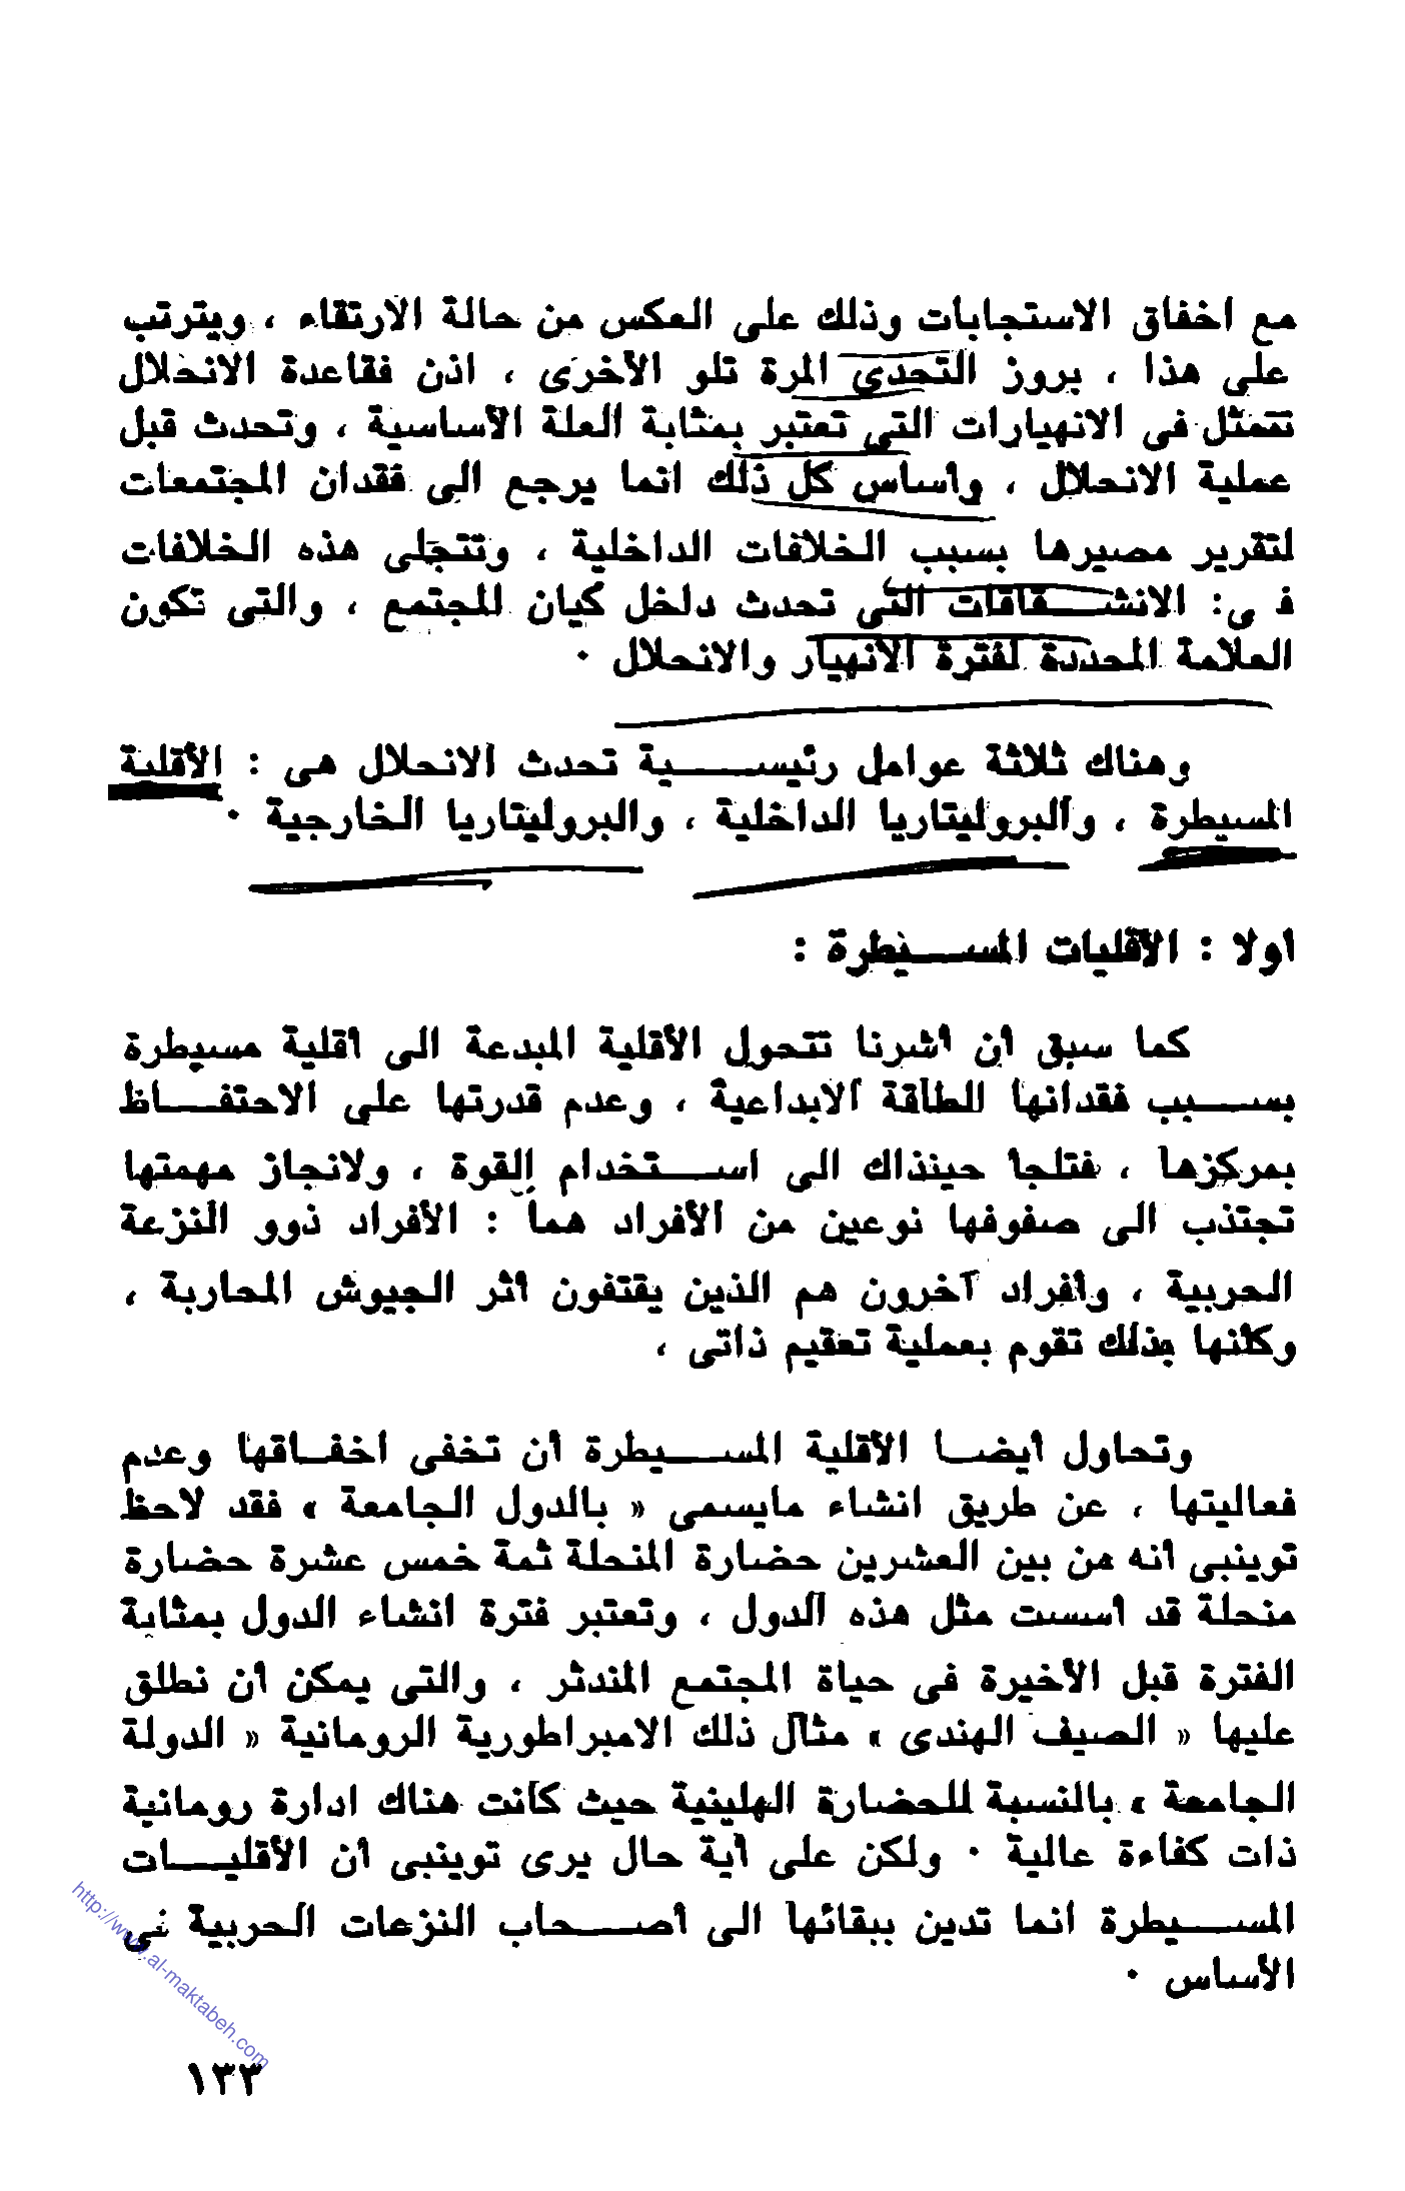 مع اخفاق الاستجابات وذلك على العكس من حالة الارتقاء ، ويترتب
على هذا ، بروز التحدى المرة تلو الأخرى ، اذن فقاعدة الانحلال
تتمثل فى الانهيارات التي تعتبر بمثابة العلة الأساسية ، وتحدث قبل
عملية الانحلال ، وأساس كل ذلك انما يرجع الى فقدان المجتمعات
لتقرير مصيرها بسبب الخلافات الداخلية ، وتتجلى هذه الخلافات
ف ى: الانشـــقاقات التى تحدث دلخل كيان المجتمع ، والتى تكون
العلامة المحددة لفترة الانهيار والانحلال ٠
وهناك ثلاثة عوامل رئيســـــية تحدث الانحلال هى : الأقلية
المسيطرة ، والبروليتاريا الداخلية ، والبروليتاريا الخارجية ٠
اولا : الأقليات المســـيطرة :
كما سبق أن أشرنا تتحول الأقلية المبدعة الى أقلية مسيطرة
بســـبب فقدانها للطاقة الابداعية ، وعدم قدرتها على الاحتفـــاظ
بمركزها ، فتلجأ حينذاك الى اســـتخدام القوة ، ولانجاز مهمتها
تجتذب الى صفوفها نوعين من الأفراد هما : الأفراد ذوو النزعة
الحربية ، وأفراد آخرون هم الذين يقتفون أثر الجيوش المحاربة ،
وكأنها بذلك تقوم بعملية تعقيم ذاتى ،
وتحاول أيضـا الأقلية المســـيطرة أن تخفى اخفـاقها وعدم
فعاليتها ، عن طريق انشاء مايسمى « بالدول الجامعة » فقد لاحظ
توينبى أنه من بين العشرين حضارة المنحلة ثمة خمس عشرة حضارة
منحلة قد أسست مثل هذه الدول ، وتعتبر فترة انشاء الدول بمثابة
الفترة قبل الأخيرة فى حياة المجتمع المندثر ، والتى يمكن أن نطلق
عليها « الصيف الهندى » مثال ذلك الامبراطورية الرومانية « الدولة
الجامعة » بالنسبة للحضارة الهلينية حيث كانت هناك ادارة رومانية
ذات كفاءة عالية ٠ ولكن على أية حال يرى توينبى أن الأقليـــات
المســـيطرة انما تدين ببقائها الى أصـــحاب النزعات الحربية فى
الأساس ٠
http://www.al-maktabeh.com
١٣٣